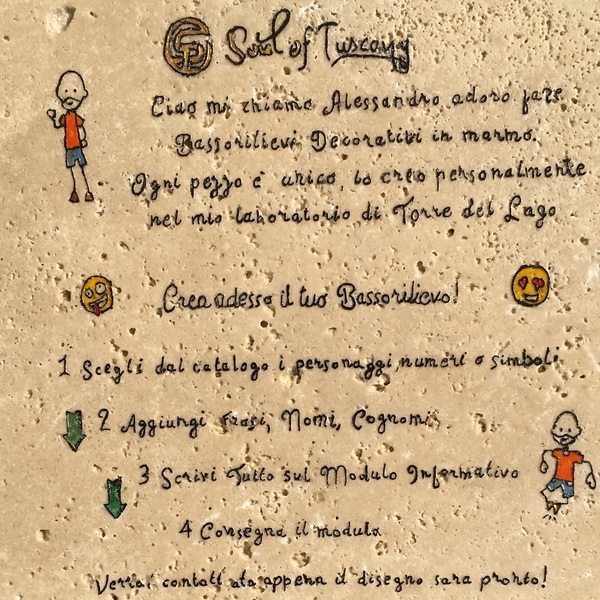 Soul of Tuscany
Ciao mi chiamo Alessandro adoro fare
Bassorilievi Decorativi in marmo.
Ogni pezzo è unico, lo creo personalmente
nel mio laboratorio di Torre del Lago
Crea adesso il tuo Bassorilievo!
1 Scegli dal catalogo i personaggi, numeri o simboli
2 Aggiungi Frasi, Nomi, Cognomi
3 Scrivi Tutto sul Modulo Informativo
4 Consegna il modulo
Verrai contattato appena il disegno sara pronto!